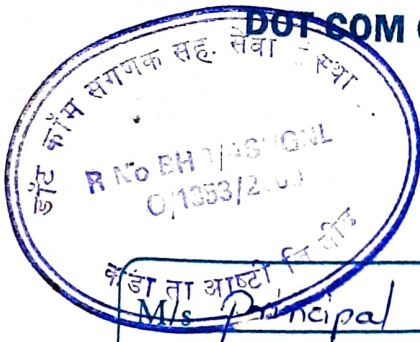 DOT COM
डॉट कॉम संगणक सह. सेवा
R No BH
O/1353/2
कडा ता आष्टी जि बीड
M/s Principal